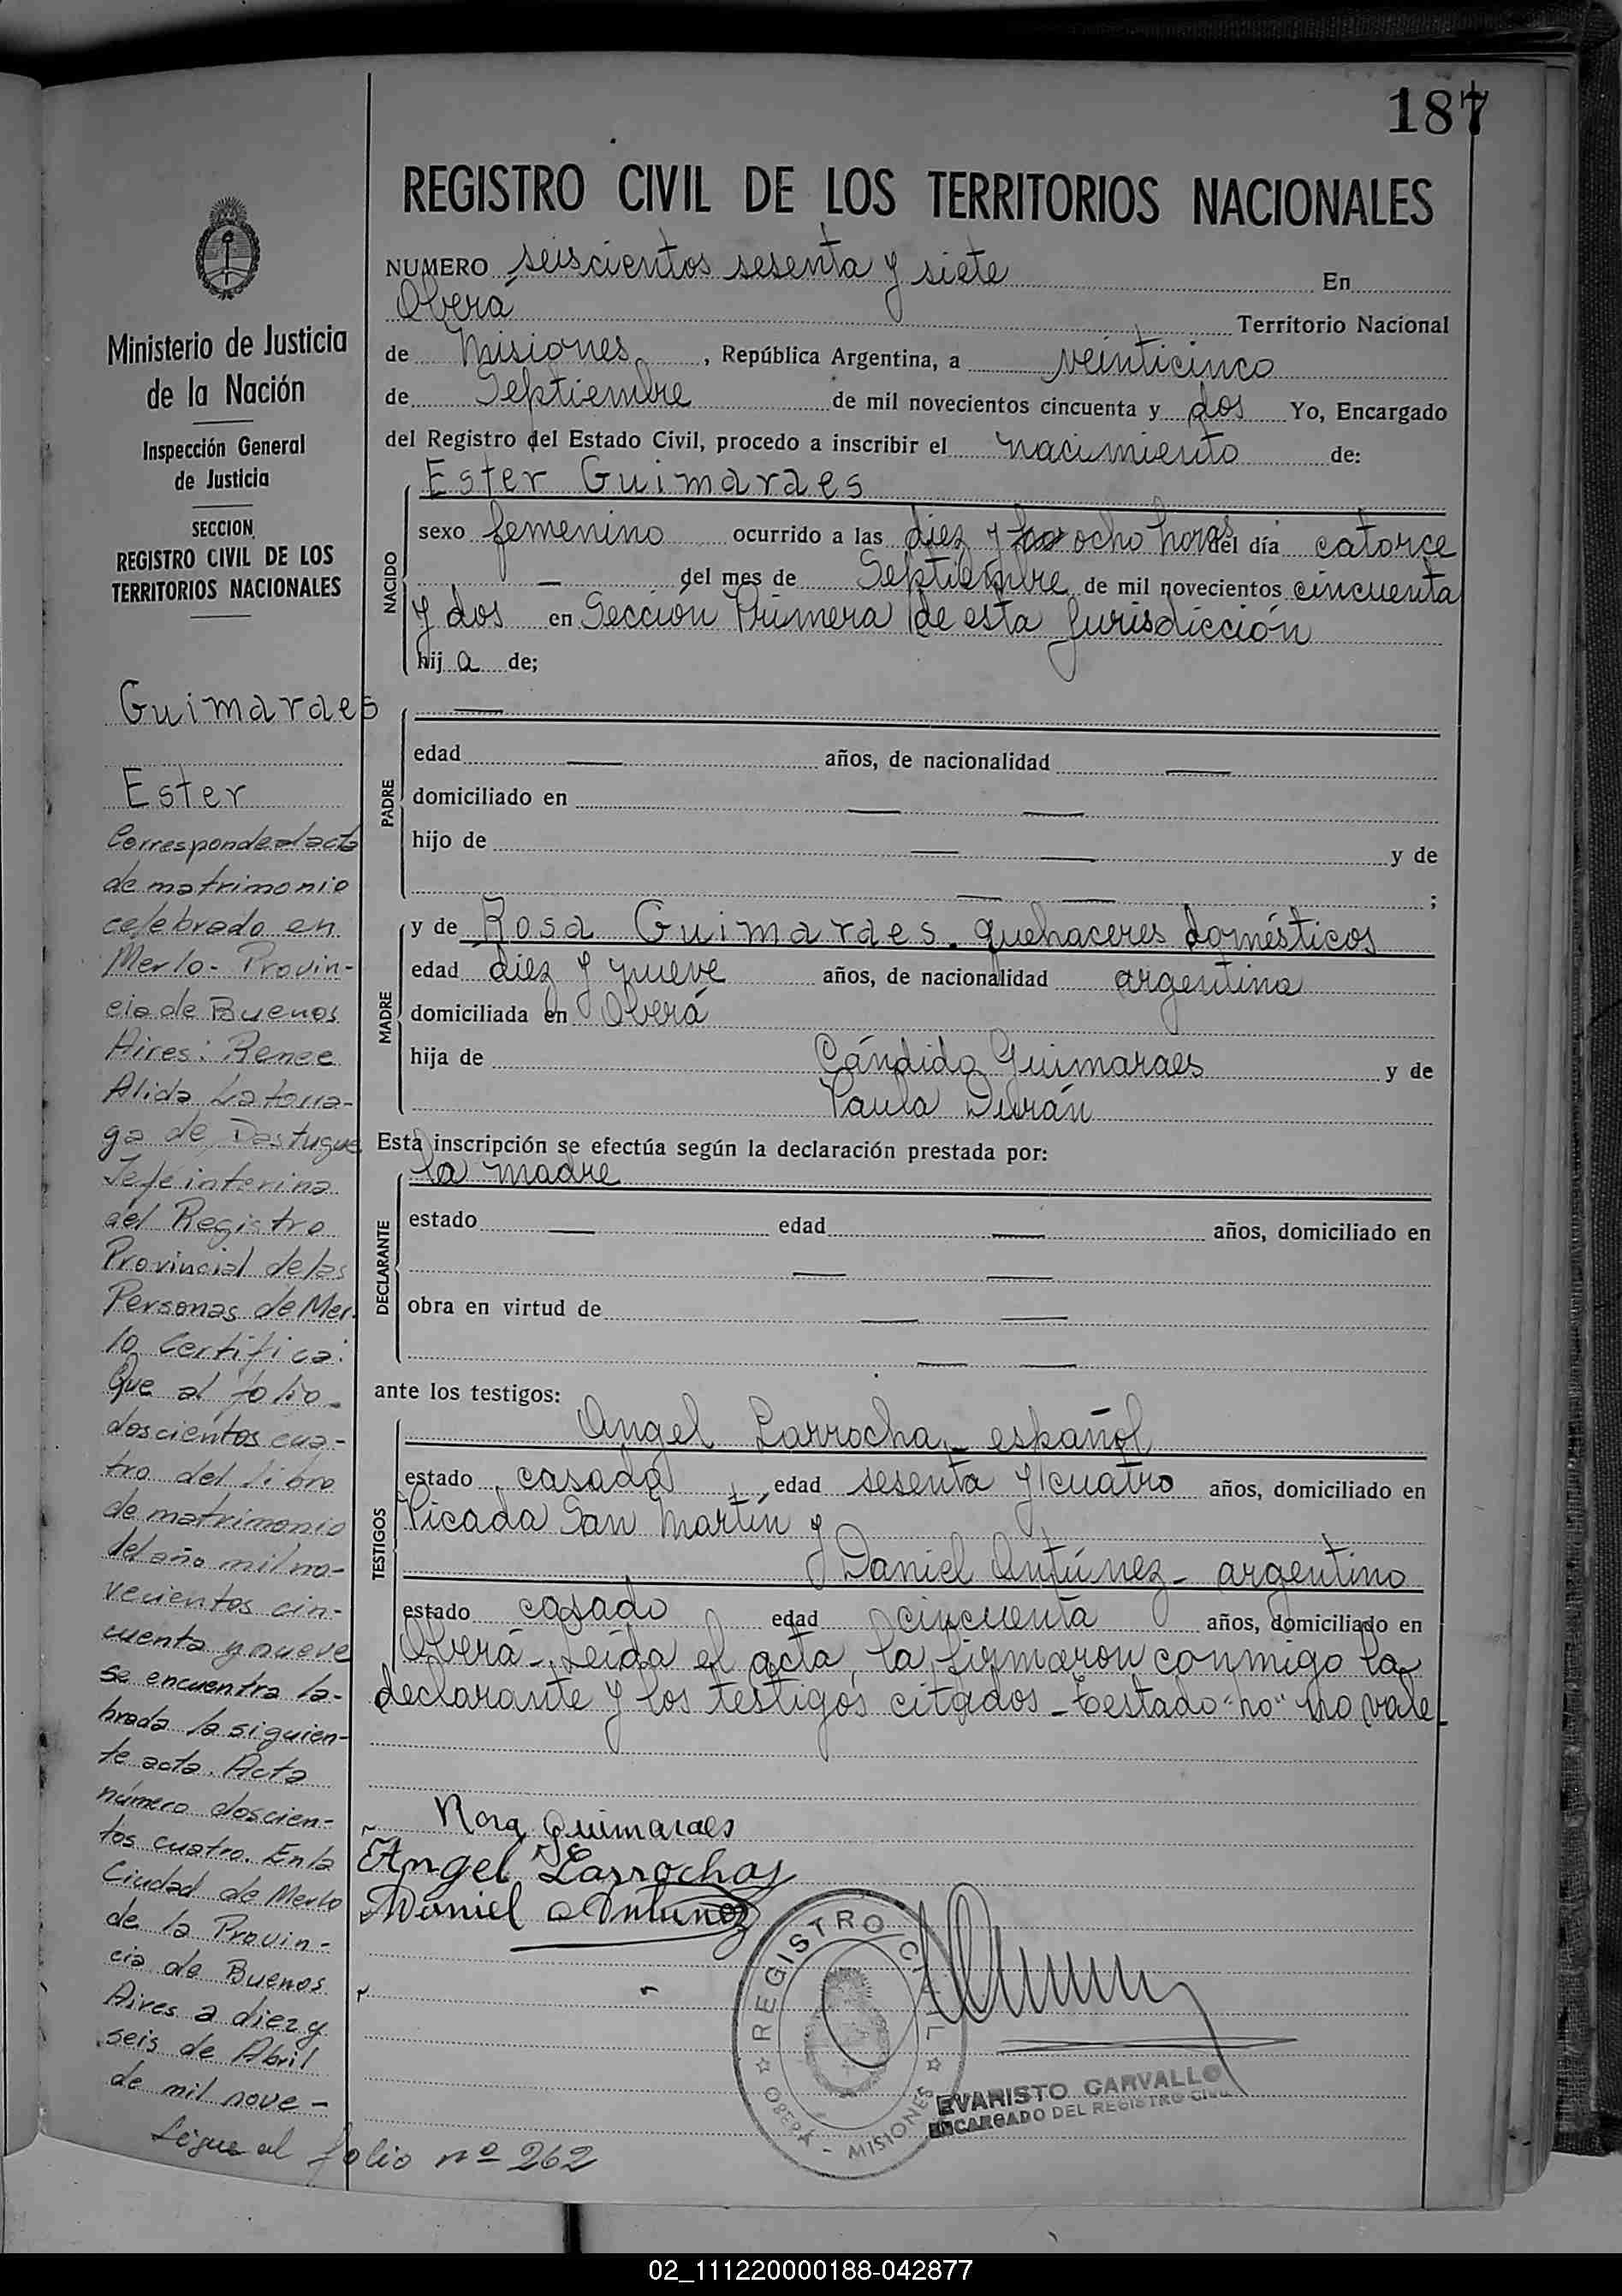 187
REGISTRO CIVIL DE LOS TERRITORIOS NACIONALES
NUMERO seiscientos sesenta y siete En
Oberá Territorio Nacional
de Misiones, República Argentina, a veinticinco
de Septiembre de mil novecientos cincuenta y dos Yo, Encargado
del Registro del Estado Civil, procedo a inscribir el nacimiento de:
Ester Guimaraes
NACIDO
sexo femenino ocurrido a las diez y ho ocho horas del día catorce
— del mes de Septiembre de mil novecientos cincuenta
y dos en Sección Primera de esta Jurisdicción
hija de;
PADRE
—
edad — años, de nacionalidad —
domiciliado en — —
hijo de — — y de
— — ;
MADRE
y de Rosa Guimaraes. quehaceres domésticos
edad diez y nueve años, de nacionalidad argentina
domiciliada en Oberá
hija de Cándido Guimaraes y de
Paula Durán
Esta inscripción se efectúa según la declaración prestada por:
la madre
DECLARANTE
estado — edad — años, domiciliado en
— —
obra en virtud de — —
— —
ante los testigos:
TESTIGOS
Angel Larrocha - español
estado casado edad sesenta y cuatro años, domiciliado en
Picada San Martín y
Daniel Antúnez - argentino
estado casado edad cincuenta años, domiciliado en
Oberá - Leída el acta, la firmaron conmigo la
declarante y los testigos citados - Testado "ho" no vale -
Rosa Guimaraes
Angel Larrocha
Daniel Antunez
REGISTRO CIVIL
OBERA - MISIONES
EVARISTO CARVALLO
ENCARGADO DEL REGISTRO CIVIL
Ministerio de Justicia
de la Nación
Inspección General
de Justicia
SECCION
REGISTRO CIVIL DE LOS
TERRITORIOS NACIONALES
Guimaraes
Ester
Corresponde al acta
de matrimonio
celebrado en
Merlo - Provin-
cia de Buenos
Aires: Renee
Alida
de
Jefe interina
del Registro
Provincial de las
Personas de Mer-
lo Certifica:
Que al folio
doscientos cua-
tro del libro
de matrimonio
del año mil no-
vecientos cin-
cuenta y nueve
se encuentra la-
brada la siguien-
te acta. Acta
número doscien-
tos cuatro. En la
Ciudad de Merlo
de la Provin-
cia de Buenos
Aires a diez y
seis de Abril
de mil nove-
Sigue al folio nº 262
02_111220000188-042877